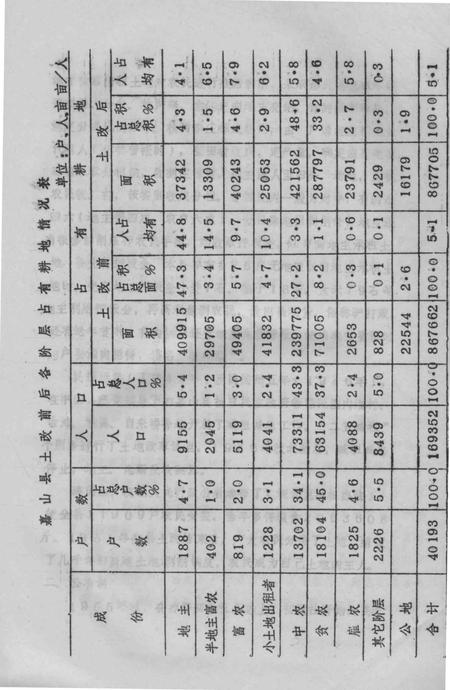 嘉山县土改前后各阶层占有耕地情况表
单位：户、人、亩、亩/人
成份 户数 人口 占有耕地
土改前 土改后
户数 占总户数% 人口 占总人口% 面积 占总面积% 人占均有 面积 占总面积% 人占均有
地主 1887 4·7 9155 5·4 409915 47·3 44·8 37342 4·3 4·1
半地主富农 402 1·0 2045 1·2 29705 3·4 14·5 13309 1·5 6·5
富农 819 2·0 5119 3·0 49405 5·7 9·7 40243 4·6 7·9
小土地出租者 1228 3·1 4041 2·4 41832 4·7 10·4 25053 2·9 6·2
中农 13702 34·1 73311 43·3 239775 27·2 3·3 421562 48·6 5·8
贫农 18104 45·0 63154 37·3 71005 8·2 1·1 287797 33·2 4·6
雇农 1825 4·6 4088 2·4 2653 0·3 0·6 23791 2·7 5·8
其它阶层 2226 5·5 8439 5·0 828 0·1 0·1 2429 0·3 0·3
公地 22544 2·6 16179 1·9
合计 40193 100·0 169352 100·0 867662 100·0 5·1 867705 100·0 5·1